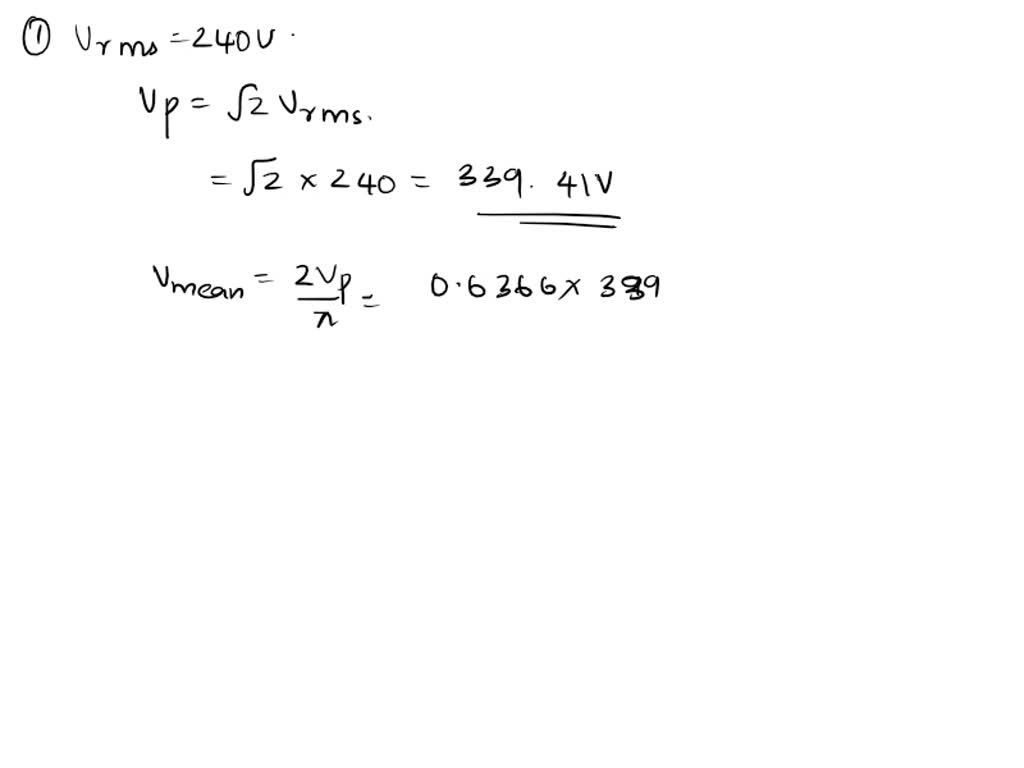 ① Vrms = 240V.
Vp = √2 Vrms.
= √2 × 240 = 339.41V
Vmean = 2Vp/π = 0.6366 × 339